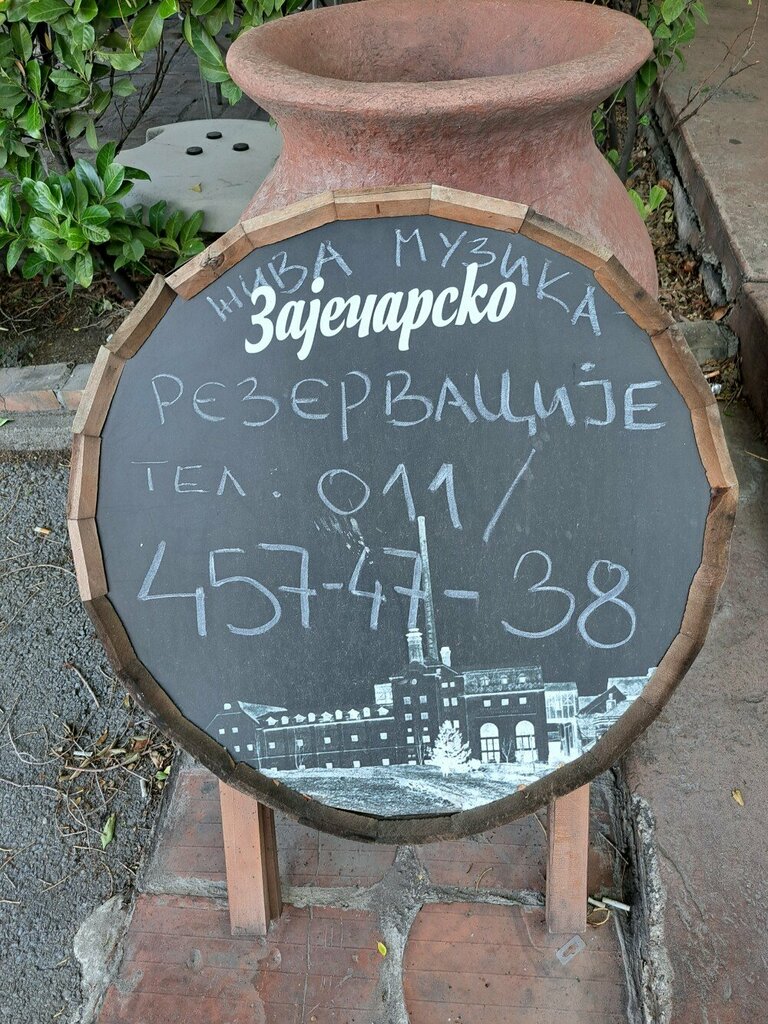 ЖИВА МУЗИКА
Зајечарско
РЕЗЕРВАЦИЈЕ
ТЕЛ. 011/
457-47-38